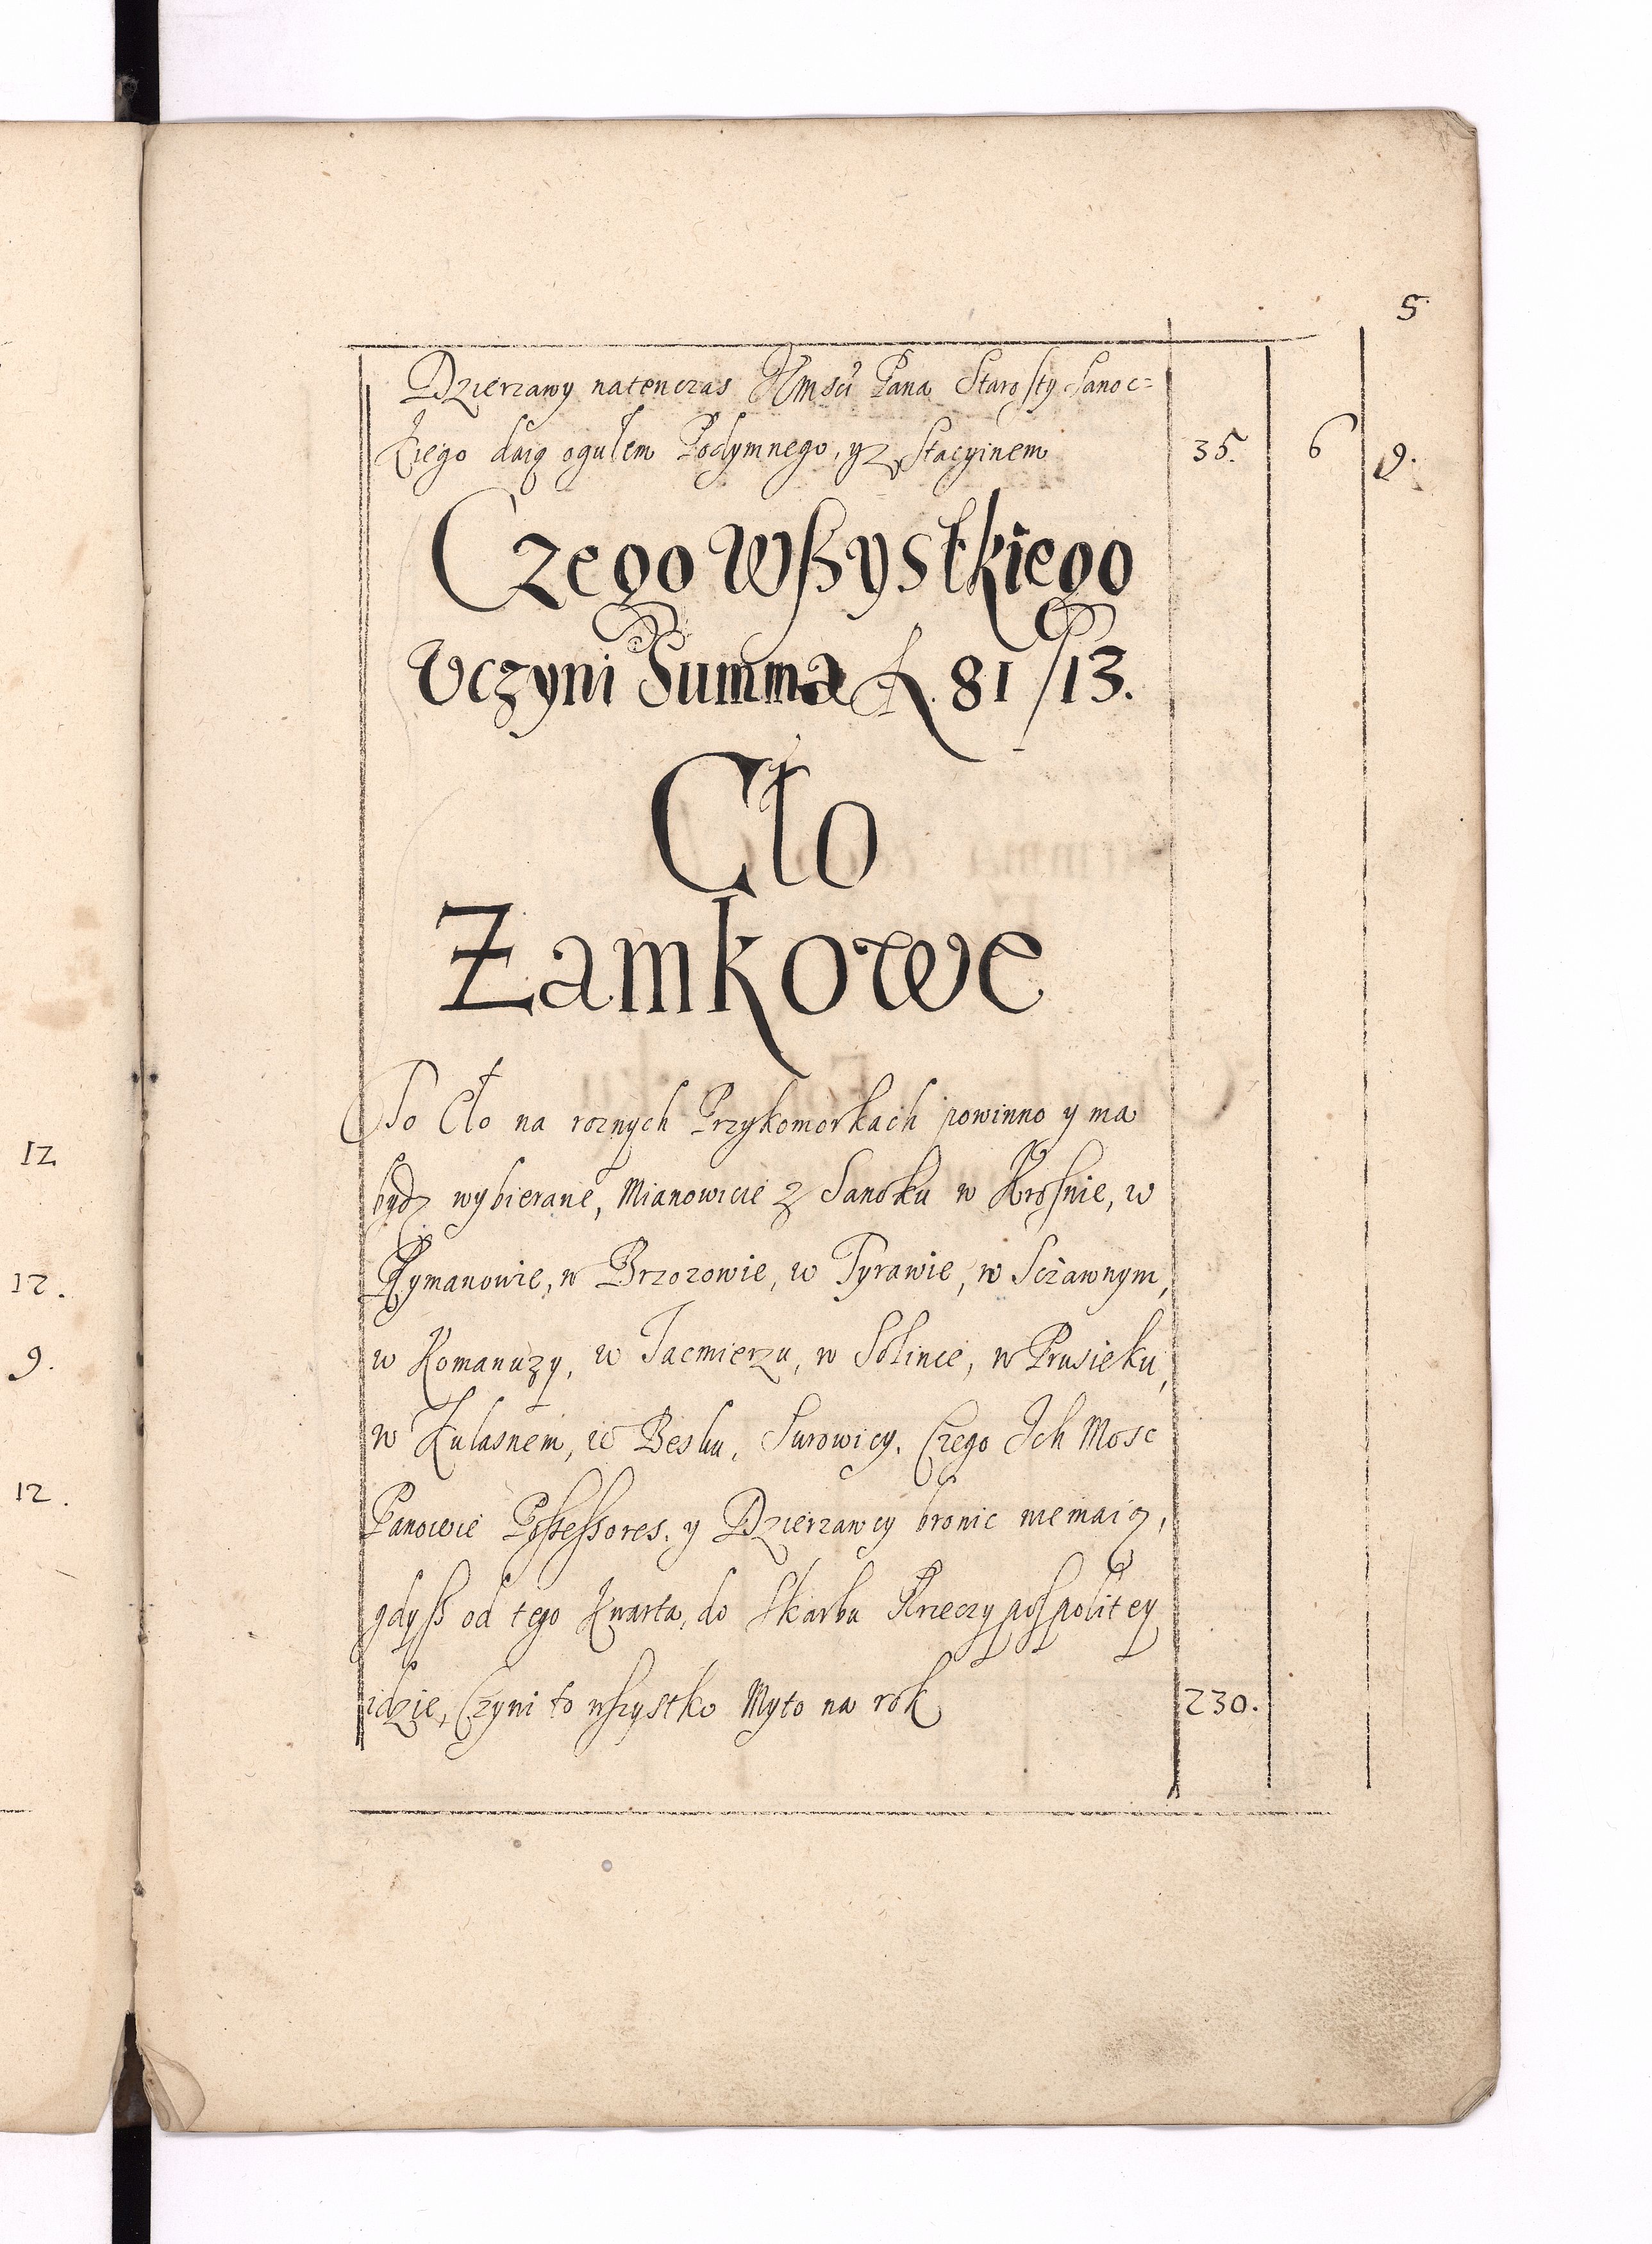 5.
Dzierzawy natenczas JEmści Pana Starosty Sanoc=
kiego daią ogułem Podymnego, yz Stacyinem 35. 6 9.
Czego Wßystkiego
Vczyni Summa f. 81/13.
Cło
Zamkowe
To Cło na roznych Przykomorkach powinno y ma
bydz wybierane, Mianowicie z Sanoku w Krosnie, w
Rymanowie, w Brzozowie, w Tyrawie, w Sczawnym,
w Komanczy, w Jacmierzu, w Solince, w Prusieku,
w Kulasnem, w Besku, Surowicy. Czego Ich Mosc
Panowie Possessores. y Dzierzawcy bronic niemaią,
gdyß od tego kwarta, do Skarbu Rzeczypospolitey
idzie, Czyni to wszystko Myto na rok 230.
12
12.
9.
12.